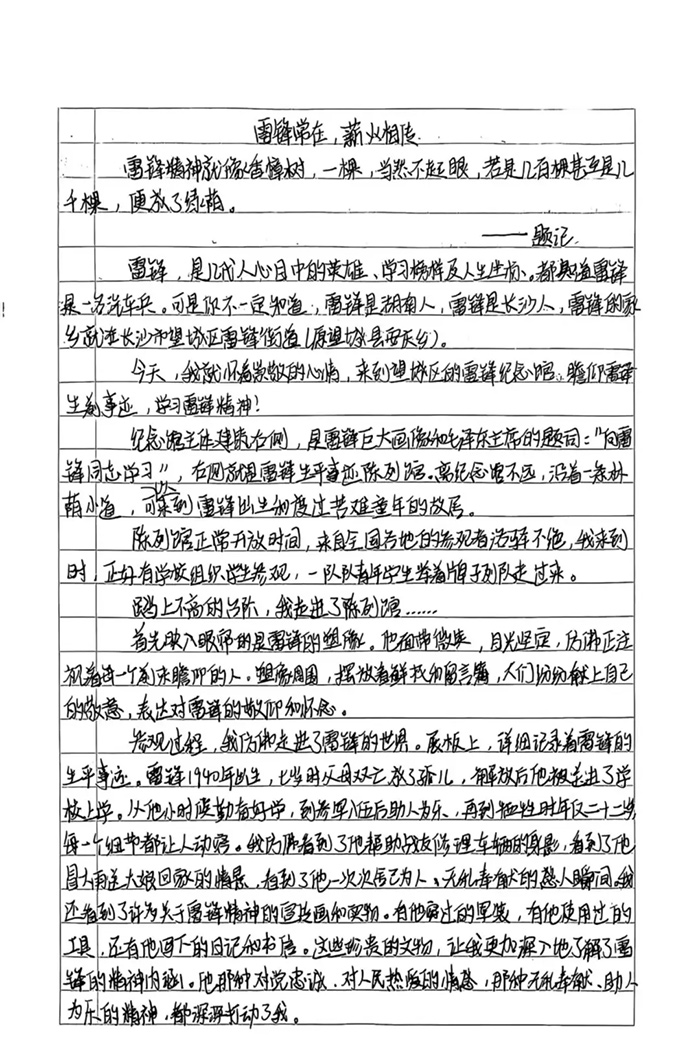 雷锋常在，薪火相传
雷锋精神就像香樟树，一棵，当然不起眼，若是几百棵甚至是几
千棵，便成了绿荫。
——题记
雷锋，是几代人心目中的英雄、学习榜样及人生坐标。都知道雷锋
是一名汽车兵。可是你不一定知道，雷锋是湖南人，雷锋是长沙人，雷锋的家
乡就在长沙市望城区雷锋街道（原望城县安庆乡）。
今天，我就怀着崇敬的心情，来到望城区的雷锋纪念馆。瞻仰雷锋
生前事迹，学习雷锋精神！
纪念馆主体建筑右侧，是雷锋巨大画像和毛泽东主席的题词：“向雷
锋同志学习”，右侧就是雷锋生平事迹陈列馆。离纪念馆不远，沿着一条林
荫小道，可以来到雷锋出生和度过苦难童年的故居。
陈列馆正常开放时间，来自全国各地的参观者络驿不绝，我来到
时，正好有学校组织学生参观，一队队青年学生举着牌子列队走过来。
踏上不高的台阶，我走进了陈列馆……
首先映入眼帘的是雷锋的塑像。他面带微笑，目光坚定，仿佛正注
视着每一个前来瞻仰的人。塑像周围，摆放着鲜花和留言簿，人们纷纷献上自己
的敬意，表达对雷锋的敬仰和怀念。
参观过程，我仿佛走进了雷锋的世界。展板上，详细记录着雷锋的
生平事迹。雷锋1940年出生，七岁时父母双亡成了孤儿，解放后他被送出了学
校上学。从他小时候勤奋好学，到参军入伍后助人为乐，再到牺牲时年仅二十二岁，
每一个细节都让人动容。我仿佛看到了他帮助战友修理车辆的身影，看到了他
冒大雨送大娘回家的情景，看到了他一次次舍己为人、无私奉献的感人瞬间。我
还看到了许多关于雷锋精神的宣传画和实物。有他穿过的军装，有他使用过的
工具，还有他留下的日记和书信。这些珍贵的文物，让我更加深入地了解了雷
锋的精神内涵。他那种对党忠诚、对人民热爱的情感，那种无私奉献、助人
为乐的精神，都深深打动了我。